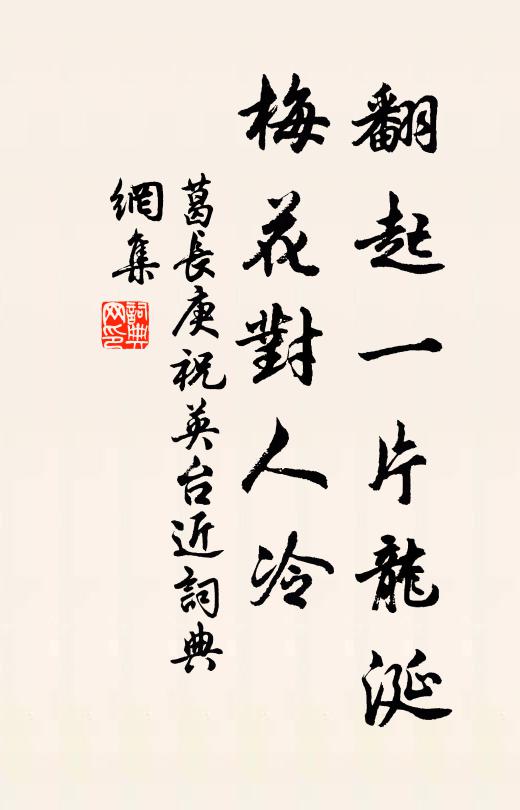 翻起一片龍涎
梅花對人冷
葛長庚祝英台近詞典
網集
詞典
网印